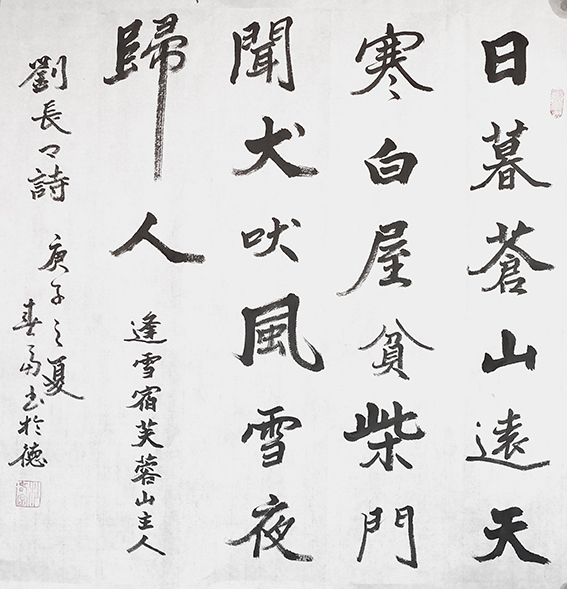 日暮蒼山遠天
寒白屋貧柴門
聞犬吠風雪夜
歸人
逢雪宿芙蓉山主人
劉長々詩
庚子之夏
春书於德